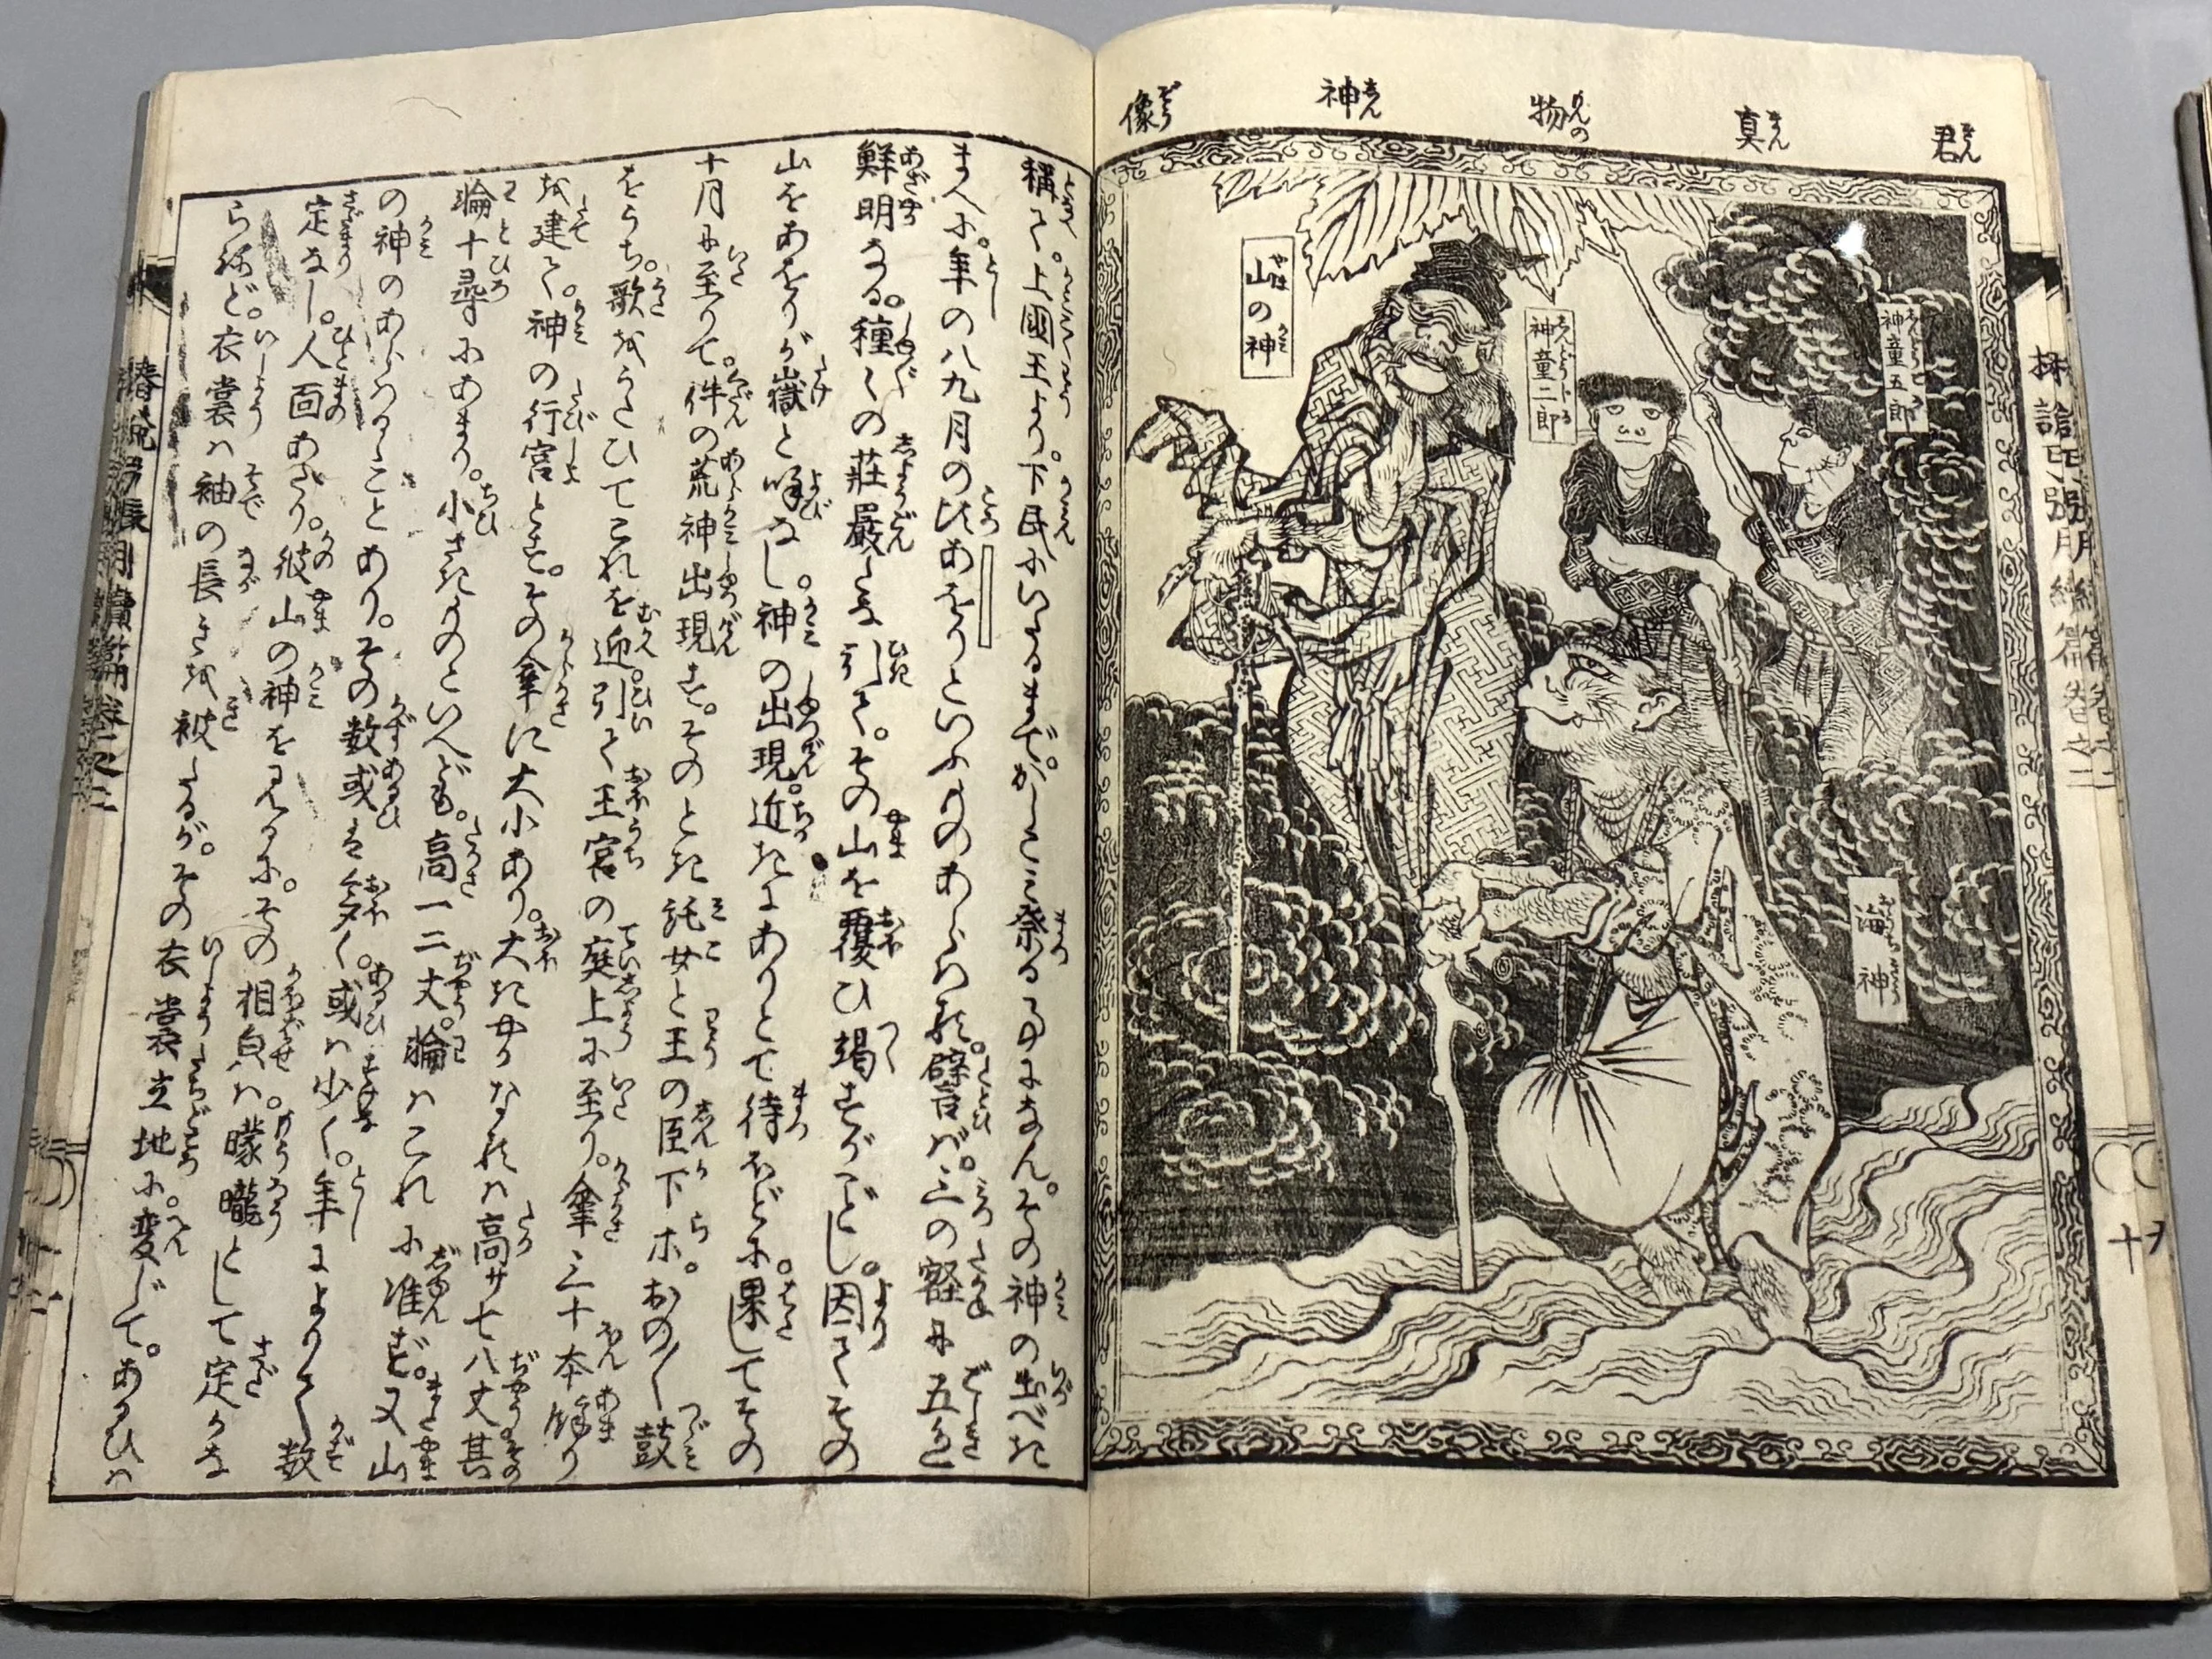 君真物の神像
山の神
神童二郎
神童五郎
海神
椿説弓張月續篇卷之二
稱て。上國王より。下民にいたるまで。かしこみ祭る事になん。その神の出べき
まへに。年の八九月の比あをりといふものあらはれ。譬ば。三の に五色
鮮明なる。種〱の莊嚴 引て。その山を覆ひ竭すがごとし。因てその
山をあをりが嶽と喚なし。神の出現。近きにありとて待ほどに。果してその
十月に至りて。件の荒神出現す。そのとき託女と王の臣下ホ。おの〱鼓
をうち。歌をうたひてこれを迎。引て王宮の庭上に至り。傘三十本餘り
を建て。神の行宮とす。その傘に大小あり。大きやかなるは高サ七八丈其
輪十尋にあまり。小さきものといへども。高一二丈。輪はこれに准ず。又山
の神のあらはるゝことあり。その数或は多く。或は少く。年によりて数
定なし。人面あり。彼山の神を見るに。その相貌は朦朧として定かな
らねど。衣裳は袖の長きを被たるが。その衣裳立地に変じて。あるひは
椿説弓張月續篇卷之二